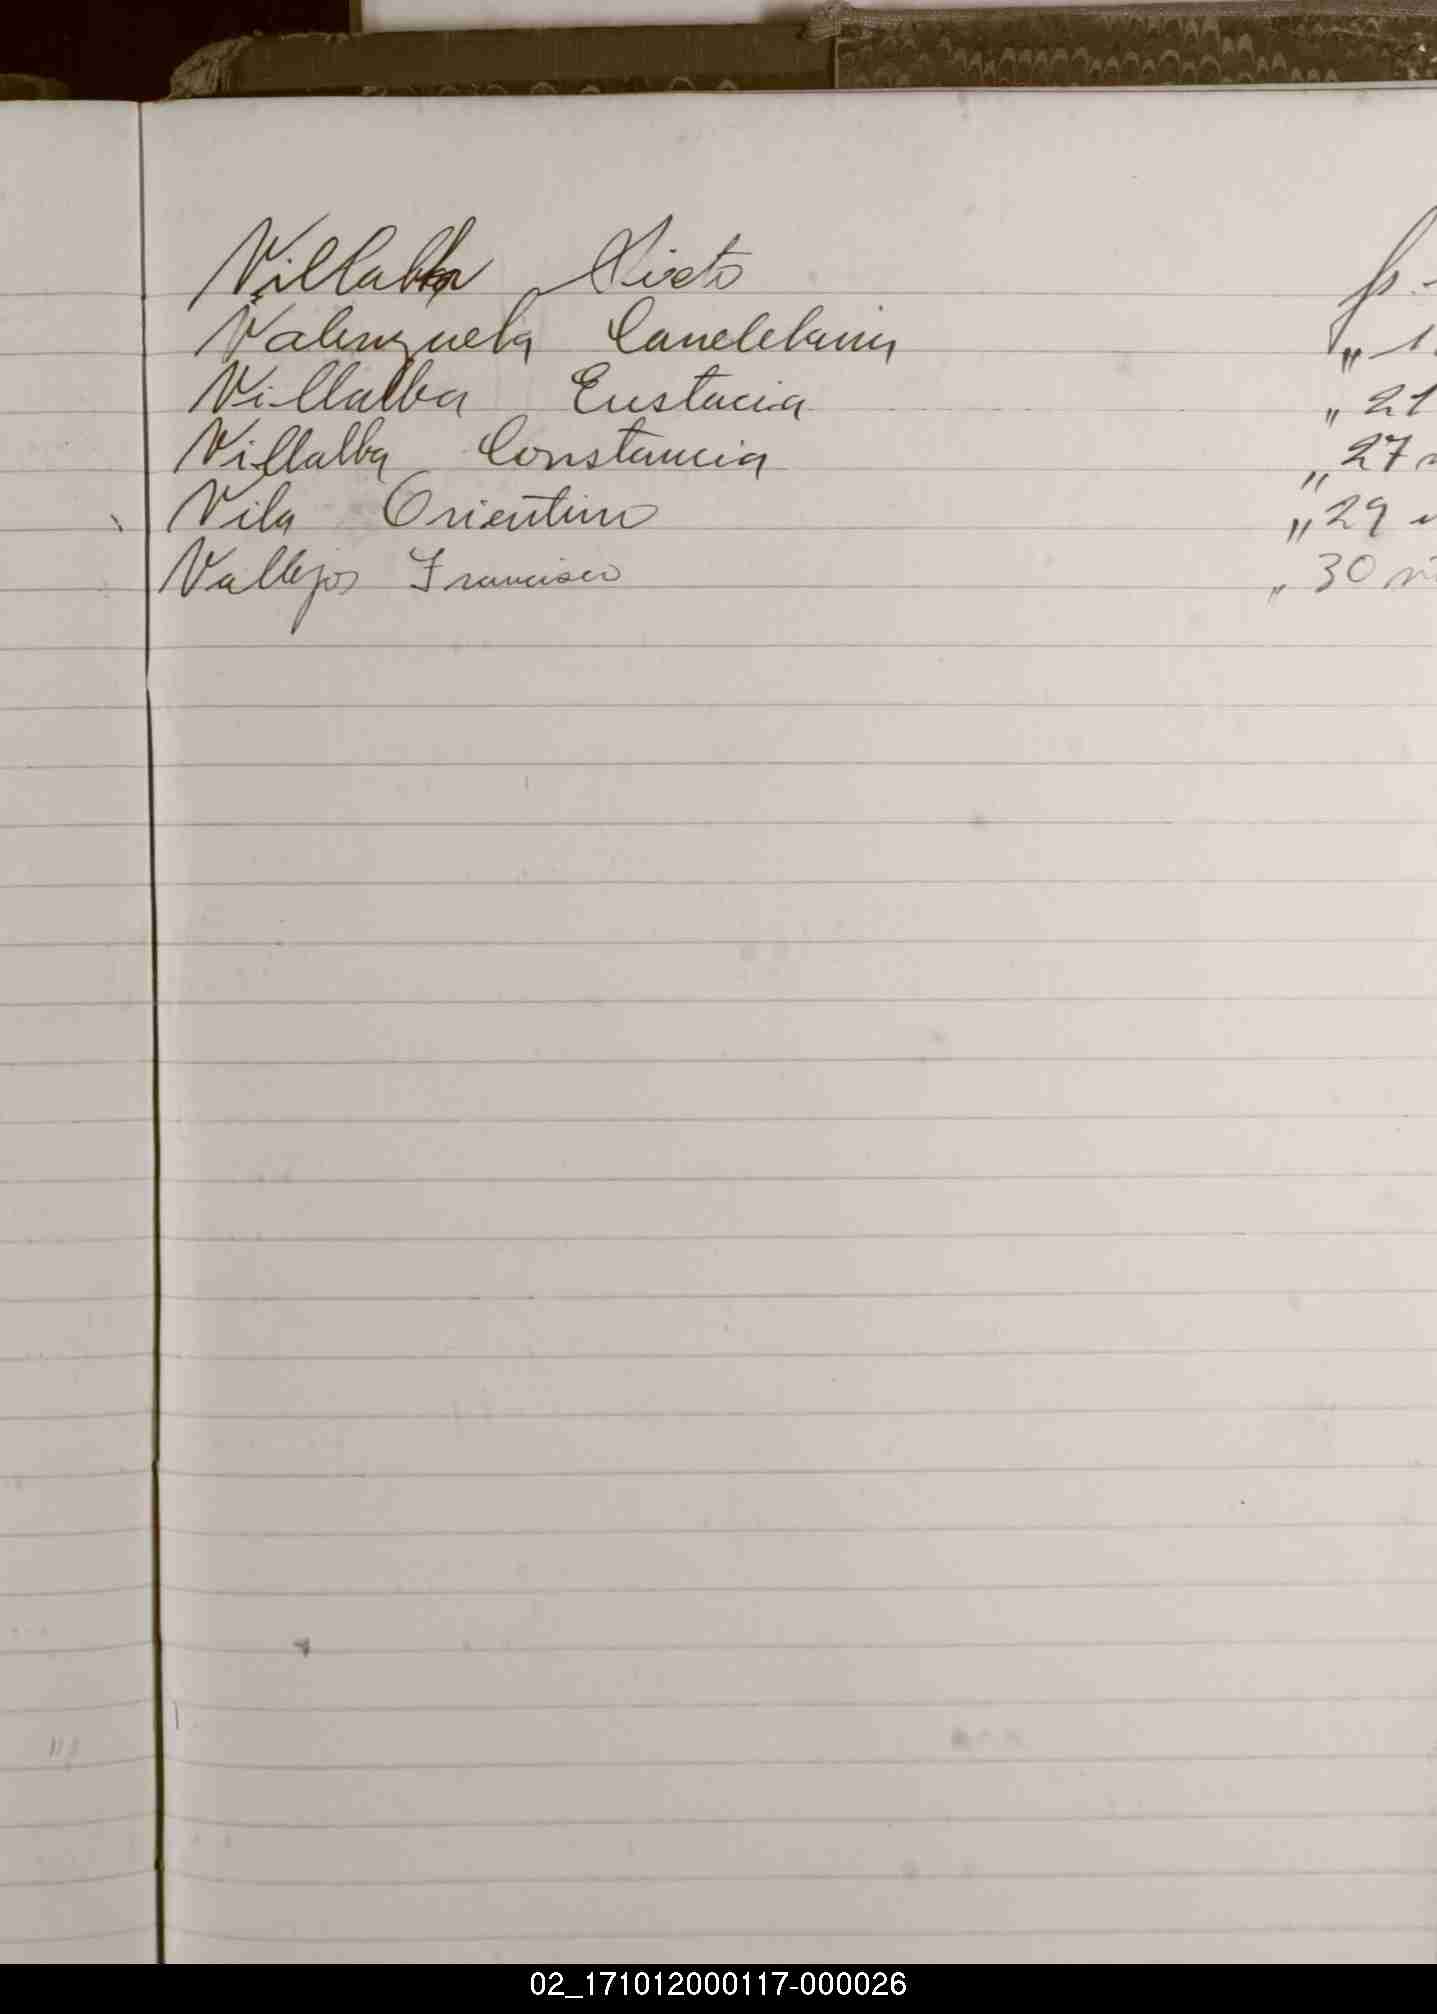 Villalba Nieto
Valenzuela Candelaria " 1
Villalba Eustacia " 21
Villalba Constancia " 27
Vila Orientino " 29
Vallejos Francisco " 30
02_171012000117-000026